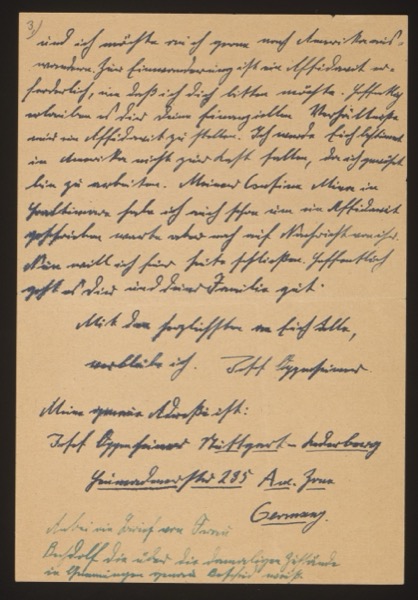 3)
und ich möchte auch gerne nach Amerika aus-
wandern. Zur Einwanderung ist ein Affidavit er-
forderlich, um daß ich dich bitten möchte. Hoffentlich
erlauben es dir deine finanziellen Verhältnisse
mir ein Affidavit zu stellen. Ich werde Euch bestimmt
in Amerika nicht zur Last fallen, da ich gewöhnt
bin zu arbeiten. Meiner Cousine in
Baltimore habe ich auch schon um ein Affidavit
geschrieben warte aber noch auf Nachricht von ihr.
Nun will ich für heute schließen. Hoffentlich
geht es dir und deiner Familie gut.
Mit den herzlichsten an Euch Alle,
verbleibe ich. Josef Oppenheimer
Meine genaue Adresse ist:
Josef Oppenheimer Stuttgart -
235 Am. Zone
Germany.
Anbei ein Brief von Frau
die über die damaligen Zustände
in genau Bescheid weiß.